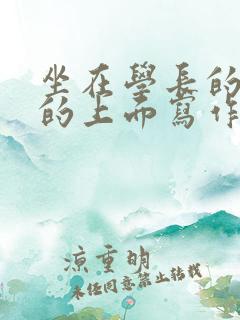 坐在學長的
的上面寫作
涼重明
未经同意禁止转载